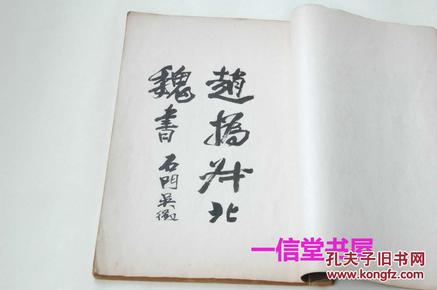 趙撝叔北
魏書
石門吳徵
一信堂书屋
孔夫子旧书网
www.kongfz.com